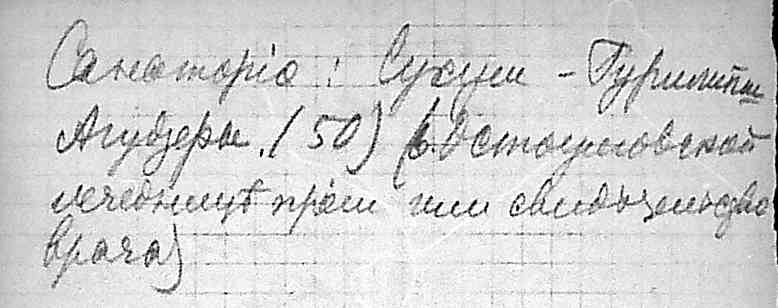 Санаторіо: Сухум - Гурипш
Агудзеры. (50) (в Остоумовской
лечебницѣ пріем или свидѣтельство
врача)